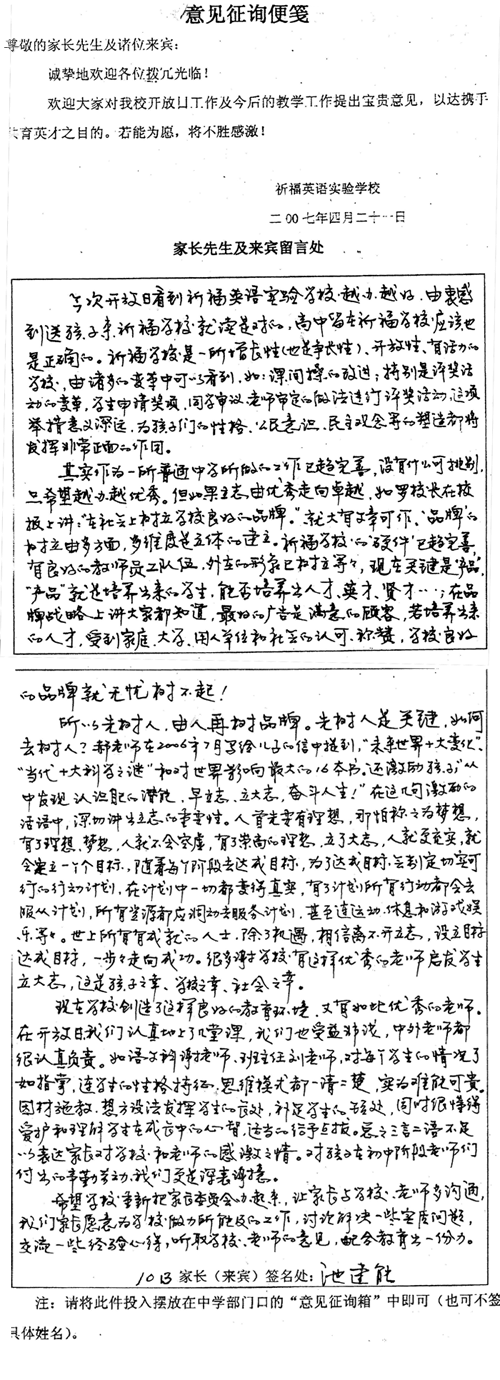 意见征询便笺
尊敬的家长先生及诸位来宾：
诚挚地欢迎各位拨冗光临！
欢迎大家对我校开放日工作及今后的教学工作提出宝贵意见，以达携手
共育英才之目的。若能为愿，将不胜感激！
祈福英语实验学校
二00七年四月二十一日
家长先生及来宾留言处
今次开放日看到祈福英语实验学校越办越好，由衷感
到送孩子来祈福学校就读是对的，高中留在祈福学校应该也
是正确的。祈福学校是一所增长性(也是争长性)、开放性、有活力的
学校，由诸多的变革中可以看到，如：课间操的改进；特别是评奖活
动的变革，学生申请奖项，同学审议，老师审定的做法进行评奖活动，这项
举措意义深远，为孩子们的性格、公民意识、民主观念等的塑造都将
发挥非常正面的作用。
其实作为一所普通中学所做的工作已趋完善，没有什么可挑剔，
只希望越办越优秀。但如果立志由优秀走向卓越，如罗校长在校
报上讲："在社会上树立学校良好的品牌。"就大有文章可作，"品牌"的
树立由多方面，多维度是立体的建立。祈福学校的"硬件"已趋完善，
有良好的教师员工队伍，外在的形象已树立等等，现在关键是"产品"，
"产品"就是培养出来的学生，能否培养出人才、英才、贤才…；在品
牌战略上讲大家都知道，最好的广告是满意的顾客，若培养出来
的人才，受到家庭、大学、用人单位和社会的认可、称赞，学校良好
的品牌就无忧树不起！
所以先树人，由人再树品牌。先树人是关键，如何
去树人？郝老师在2006年7月写给儿子的信中提到，"未来世界十大变化"、
"当代十大科学之谜"和对世界影响最大的16本书。还激励孩子"从
中发现认识自己的潜能，早立志、立大志，奋斗人生！"在这几句激励的
话语中，深切讲出立志的重要性。人首先要有理想，那怕称之为梦想，
有了理想、梦想，人就不会空虚，有了崇高的理想，立了大志，人就更充实，就
会定立一个个目标，随着每个阶段去达成目标，为了达成目标会制定切实可
行的行动计划，在计划中一切都变得真实，有了计划所有行动都会去
服从计划，所有资源都应调动去服务计划，甚至连运动、休息和游戏娱
乐等等。世上所有有成就的人士，除了机遇，相信离不开立志，设立目标
达成目标，一步步走向成功。很多谢学校有这样优秀的老师启发学生
立大志，这是孩子之幸、学校之幸、社会之幸。
现在学校创造了这样良好的教育环境，又有如此优秀的老师。
在开放日我们认真地上了几堂课，我们也受益非浅，中外老师都
很认真负责。如语文科谢老师、班主任刘老师，对每个学生的情况了
如指掌，连学生的性格特征，思维模式都一清二楚，实为难能可贵。
因材施教，想方设法发挥学生的长处，补足学生的短处，同时很懂得
爱护和理解学生在成长中的心智，适当的给予点拔。总之三言二语不足
以表达家长对学校和老师的感激之情。对孩子在初中阶段老师们
付出的辛勤劳动，我们更是深表谢意。
希望学校重新把家长委员会办起来，让家长与学校、老师多沟通，
我们家长愿意为学校做力所能及的工作，讨论解决一些实质问题，
交流一些经验心得，听取学校、老师的意见，配合教育出一份力。
家长（来宾）签名处：池建能
注：请将此件投入摆放在中学部门口的"意见征询箱"中即可（也可不签
具体姓名）。